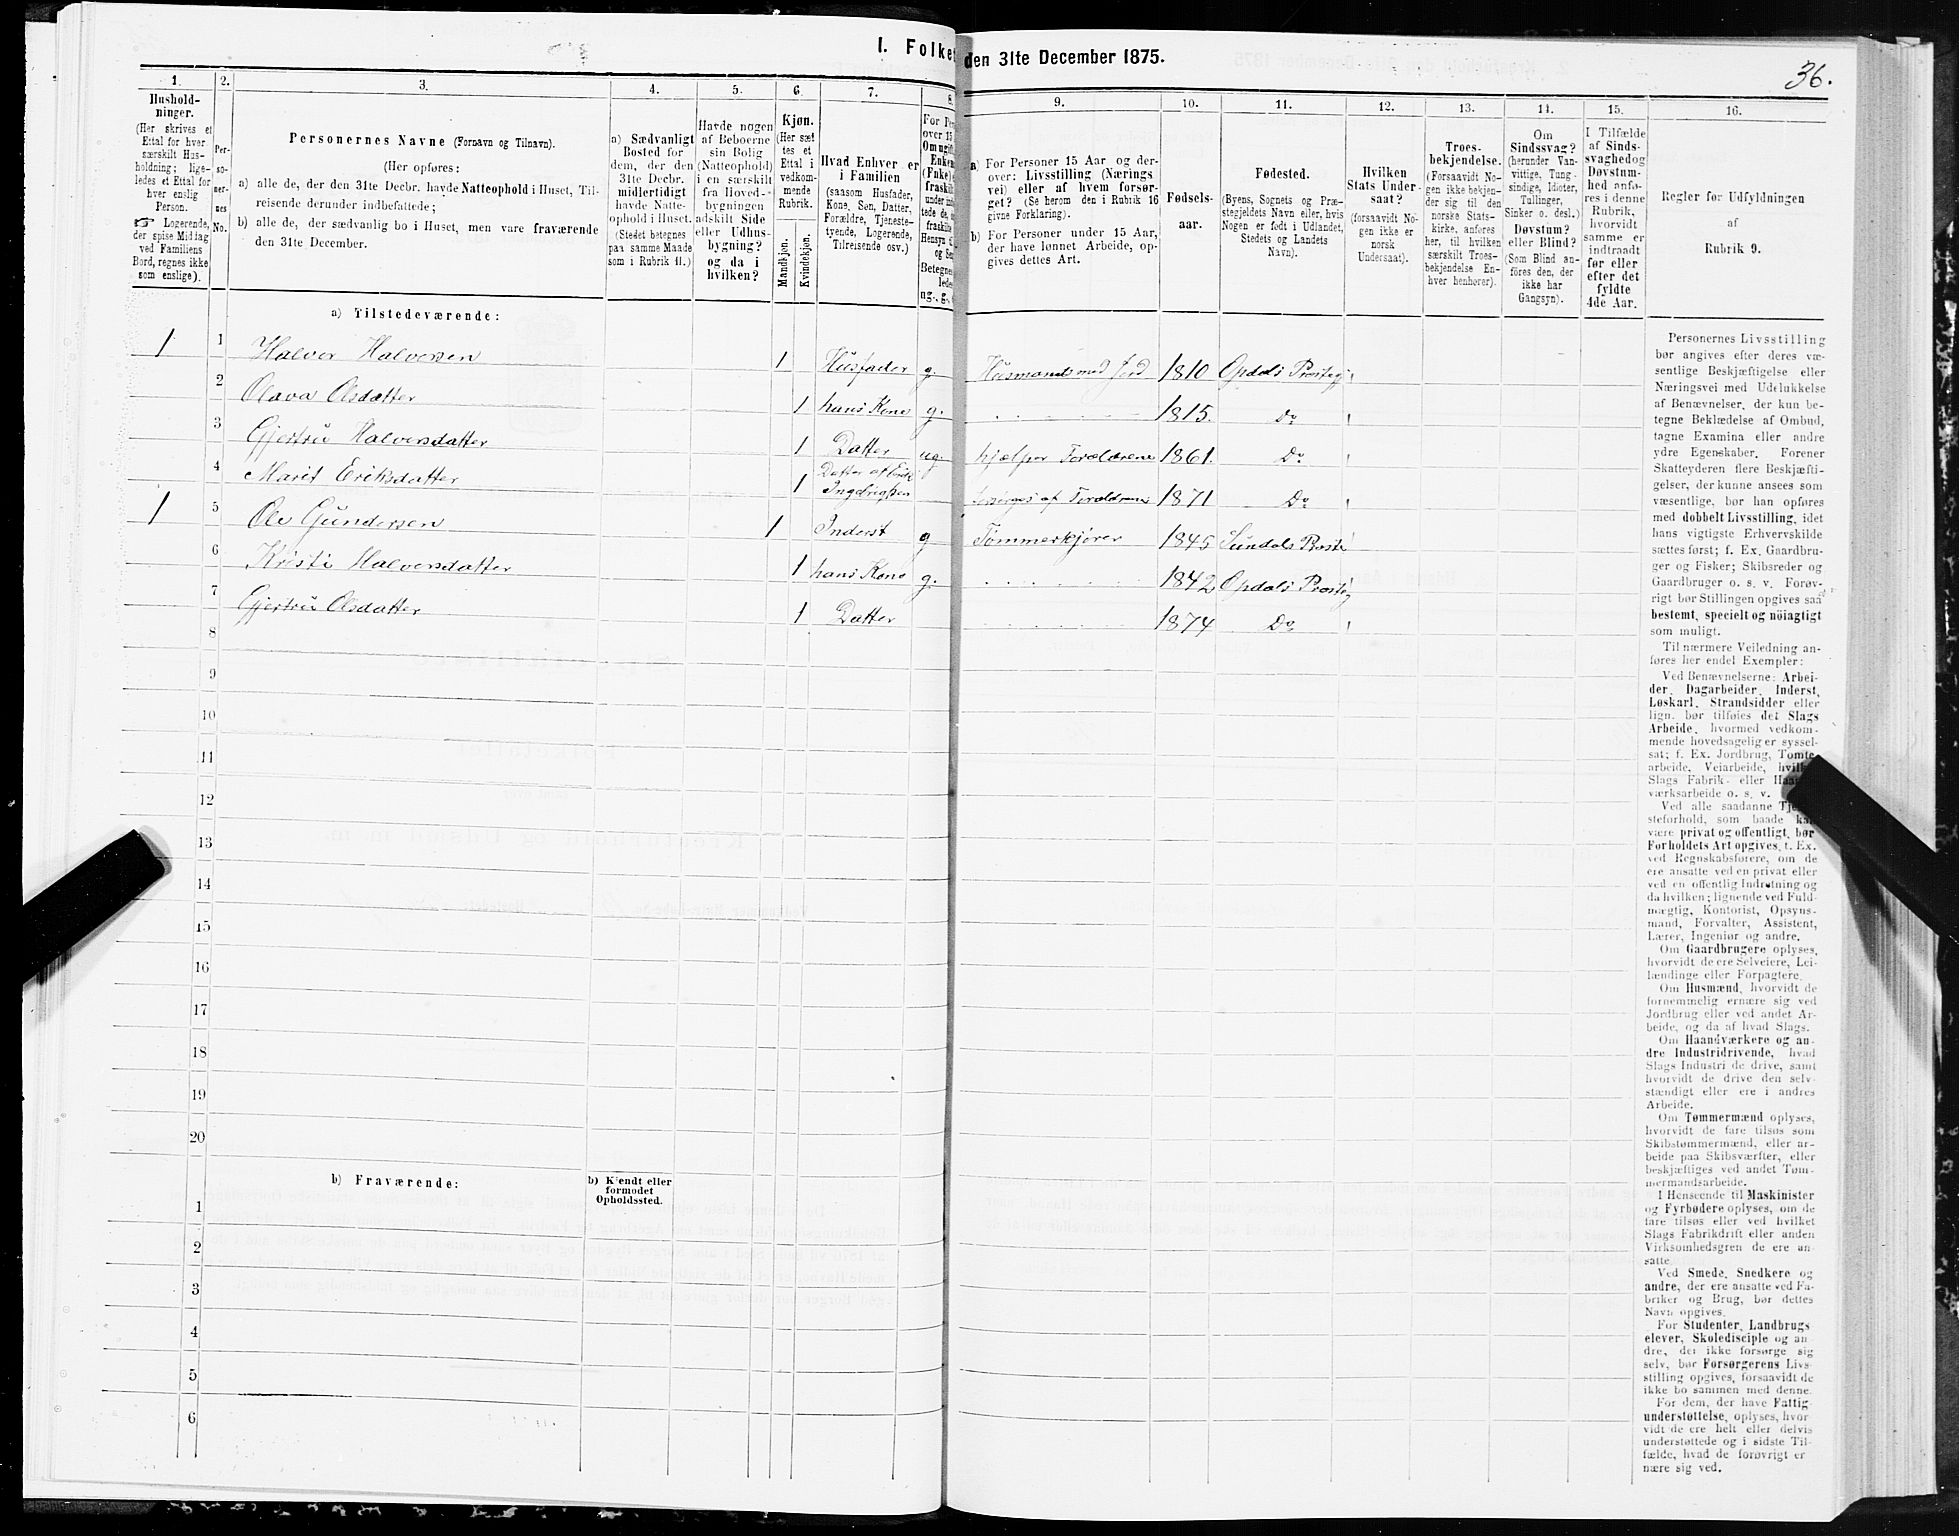 I. Folket
den 31te December 1875.
36.
1.
2.
3.
4.
5.
6.
7.
8.
9.
10.
11.
12.
13.
14.
15.
16.
Hushold-
ninger.
(Her skrives et
Ettal for hver
særskilt Hus-
holdning; lige-
ledes et Ettal for
hver enslig
Person.
☞ Logerende,
der spise Middag
ved Familiens
Bord, regnes ikke
som enslige).
Per-
so-
ner-
nes
No.
Personernes Navne (Fornavn og Tilnavn).
(Her opføres:
a) alle de, der den 31te Decbr. havde Natteophold i Huset, Til-
reisende derunder indbefattede;
b) alle de, der sædvanlig bo i Huset, men vare fraværende
den 31te December.
a) Sædvanligt
Bosted for
dem, der den
31te Decbr.
midlertidigt
havde Natte-
ophold i Huset.
(Stedet betegnes
paa samme Maade
som i Rubrik 11.)
Havde nogen
af Beboerne
sin Bolig
(Natteophold)
i en særskilt
fra Hoved-
bygningen
adskilt Side
eller Udhus-
bygning?
og da i
hvilken?
Kjøn.
(Her sæt
tes et
Ettal i
vedkom-
mende
Rubrik.
Mandkjøn.
Kvindekjøn.
Hvad Enhver er
i Familien
(saasom Husfader,
Kone, Søn, Datter,
Forældre, Tjeneste-
tyende, Logerende,
Tilreisende osv.)
For Pe
over 15
Om ugift
Enken
(Fake)
fraskil
under in
tede de,
fraskilt
Hensyn
og Se
Betegne
lede
ug-, g-,
a) For Personer 15 Aar og der-
over: Livsstilling (Nærings
vei) eller af hvem forsør-
get? (Se herom den i Rubrik 16
givne Forklaring).
b) For Personer under 15 Aar,
der have lønnet Arbeide, op-
gives dettes Art.
Fødsels-
aar.
Fødested.
(Byens, Sognets og Præ-
stegjeldets Navn eller, hvis
Nogen er født i Udlandet,
Stedets og Landets
Navn).
Hvilken
Stats Under-
saat?
(forsaavidt No-
gen ikke er
norsk
Undersaat).
Troes-
bekjendelse.
(Forsaavidt No-
gen ikke bekjen-
der sig til den
norske Stats-
kirke, anføres
her, til hvilken
særskilt Troes-
bekjendelse En-
hver henhører).
Om
Sindssvag?
(herunder Van-
vittige, Tung-
sindige, Idioter,
Tullinger,
Sinker o. desl.)
Døvstum?
eller Blind?
(Som Blind an-
føres den, der
ikke har
Gangsyn).
I Tilfælde
af Sinds-
svaghed og
Døvstum-
hed anfø-
res i denne
Rubrik,
hvorvidt
samme er
indtraadt
før eller
efter det
fyldte
4de Aar.
Regler for Udfyldningen
af
Rubrik 9.
a) Tilstedeværende:
1 1 Halver Halversen 1 Husfader g. Husmand med Jord 1810 Opdals Prestegj
2 Olava Olsdatter 1 hans Kone g. 1815. Do
3 Gjertru Halversdatter 1 Datter ug. hjelper Forældrene 1861. Do
4 Marit Eriksdatter 1 Datter af Erik
Ingebrigtsen forsørges af Forældrene 1871 Do
1 5 Ole Gundersen 1 Inderst g Tømmerkjører 1845 Sundals Preste
6 Kristi Halversdatter 1 hans Kone g. 1842 Opdals Prestegj
7 Gjertru Olsdatter 1 Datter 1874 Do
8
9
10
11
12
13
14
15
16
17
18
19
20
b) Fraværende:
b) Kjendt eller
formodet
Opholdssted.
1
2
3
4
5
6
Personernes Livsstilling
bør angives efter deres væ-
sentlige Beskjæftigelse eller
Næringsvei med Udelukkelse
af Benævnelser, der kun be-
tegne Beklædelse af Ombud,
tagne Examina eller andre
ydre Egenskaber. Forener
Skatteyderen flere Beskjæfti-
gelser, der kunne ansees som
væsentlige, bør han opføres
med dobbelt Livsstilling, idet
hans vigtigste Erhvervskilde
sættes først; f. Ex. Gaardbru-
ger og Fisker; Skibsreder og
Gaardbruger o. s. v. Forøv-
rigt bør Stillingen opgives saa
bestemt, specielt og nöiagtigt
som muligt.
Til nærmere Veiledning an-
føres her endel Exempler:
Ved Benævnelserne: Arbei-
der, Dagarbeider, Inderst,
Løskarl, Strandsidder eller
lign. bør tilføies det Slags
Arbeide, hvormed vedkom-
mende hovedsagelig er syssel-
sat; f. Ex. Jordbrug, Tomte-
arbeide, Veiarbeide, hvilket
Slags Fabrik- eller Haand-
værksarbeide o. s. v.
Ved alle saadanne Tjene-
steforhold, som baade kan
være privat og offentligt, bør
Forholdets Art opgives, f. Ex.
ved Regnskabsførere, om de
ere ansatte ved en privat eller
ved en offentlig Indretning og
da hvilken; lignende ved Fuld-
mægtig, Kontorist, Opsyns-
mand, Forvalter, Assistent,
Lærer, Ingeniør og andre.
Om Gaardbrugere oplyses,
hvorvidt de ere Selveiere, Lei-
lændinge eller Forpagtere.
Om Husmænd, hvorvidt de
fornemmelig ernære sig ved
Jordbrug eller ved andet Ar-
beide, og da af hvad Slags.
Om Haandværkere og an-
dre Industridrivende, hvad
Slags Industri de drive, samt
hvorvidt de drive den selv-
stændigt eller ere i andres
Arbeide.
Om Tømmermænd oplyses,
hvorvidt de fare tilsøs som
Skibstømmermænd, eller ar-
beide paa Skibsværfter, eller
beskjæftiges ved andet Tøm-
mermandsarbeide.
I Henseende til Maskinister
og Fyrbødere oplyses, om de
fare tilsøs eller ved hvilket
Slags Fabrikdrift eller anden
Virksomhedsgren de ere an-
satte.
Ved Smede, Snedkere og
andre, der ere ansatte ved Fa-
briker og Brug, bør dettes
Navn opgives.
For Studenter, Landbrugs
elever, Skoledisciple og an-
dre, der ikke forsørge sig
selv, bør Forsørgerens Livs-
stilling opgives, forsaavidt de
ikke bo sammen med denne.
For dem, der have Fattig-
understøttelse, oplyses, hvor
vidt de ere helt eller delvis
understøttede og i sidste Til-
fælde, hvad de forøvrigt er
nære sig ved.